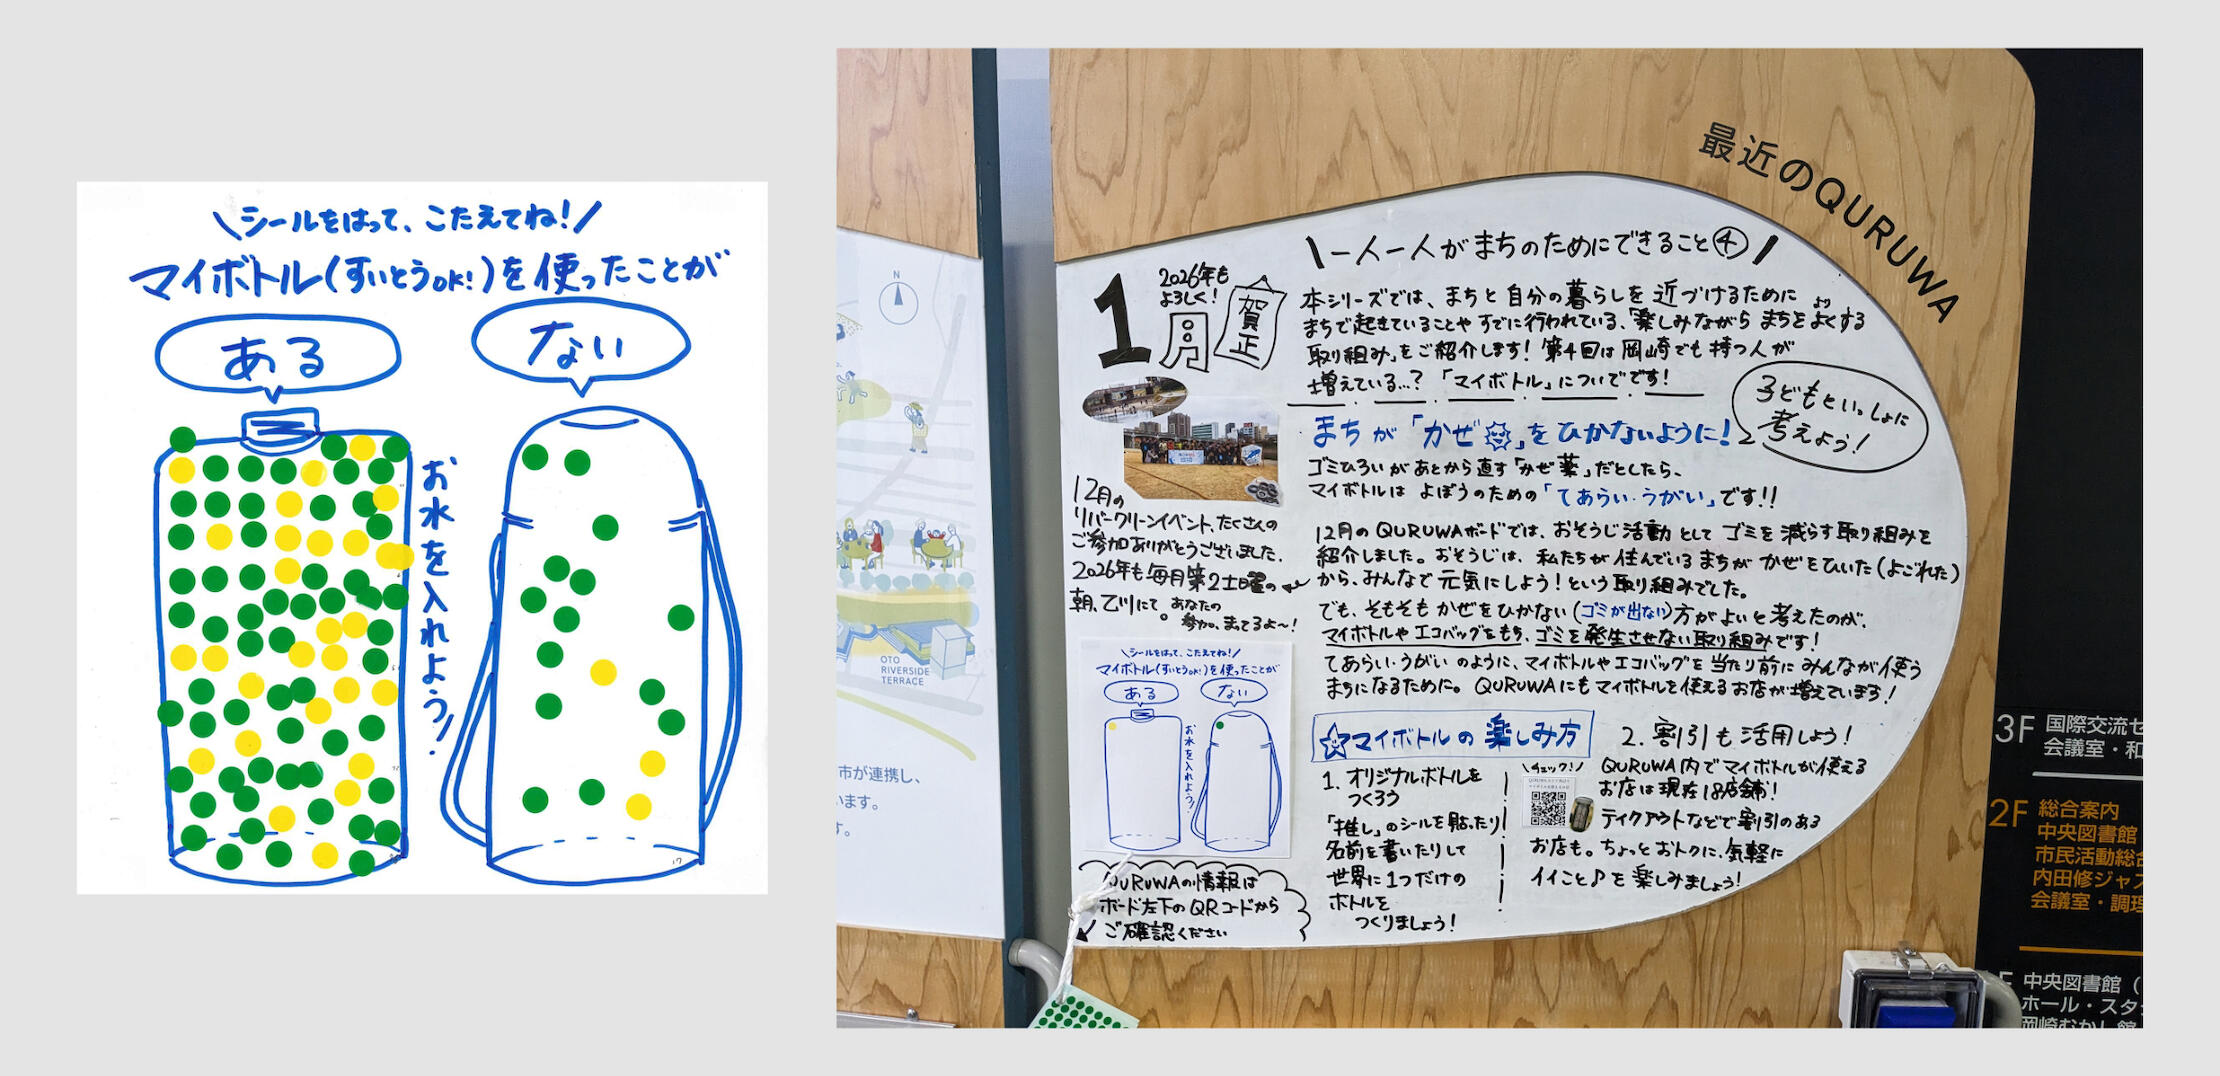 \シールをはって、こたえてね!/
マイボトル(すいとうOK!)を使ったことが
ある
ない
お水を入れよう!
17
最近のQURUWA
\一人一人がまちのためにできること④/
1月
2026年も
よろしく!
賀正
本シリーズでは、まちと自分の暮らしを近づけるために
まちで起きていることやすでに行われている、「楽しみながらまちをよくする
より
取り組み」をご紹介します!第4回は岡崎でも持つ人が
増えている…?「マイボトル」についてです!
子どもといっしょに
考えよう!
まちが「かぜ」をひかないように!
ゴミひろいがあとから直す「かぜ薬」だとしたら、
マイボトルはよぼうのための「てあらい・うがい」です!!
12月のQURUWAボードでは、おそうじ活動としてゴミを減らす取り組みを
紹介しました。おそうじは、私たちが住んでいるまちがかぜをひいた(よごれた)
から、みんなで元気にしよう!という取り組みでした。
でも、そもそもかぜをひかない(ゴミが出ない)方がよいと考えたのが、
マイボトルやエコバッグをもち、ゴミを発生させない取り組みです!
てあらい・うがいのように、マイボトルやエコバッグを当たり前にみんなが使う
まちになるために。QURUWAにもマイボトルを使えるお店が増えています!
12月の
リバークリーンイベント、たくさんの
ご参加ありがとうございました。
2026年も毎月第2土曜の
朝、乙川にて。
あなたの
参加、まってるよ〜!
\シールをはって、こたえてね!/
マイボトル(すいとうOK!)を使ったことが
ある
ない
お水を入れよう!
QURUWAの情報は
ボード左下のQRコードから
ご確認ください
☆マイボトルの楽しみ方
1. オリジナルボトルを
つくろう
「推し」のシールを貼ったり
名前を書いたりして
世界に1つだけの
ボトルを
つくりましょう!
2. 割引も活用しよう!
\チェック!/
QURUWA内でマイボトルが使える
お店は現在18店舗!
テイクアウトなどで割引のある
お店も。ちょっとおトクに、気軽に
イイこと♪を楽しみましょう!
N
OTO
RIVERSIDE
TERRACE
市が連携し、
います。
す。
3F 国際交流セ
会議室・和
2F 総合案内
中央図書館
市民活動総合
内田修ジャズ
会議室・調理
中央図書館(
ホール・スタ
岡崎むかし館